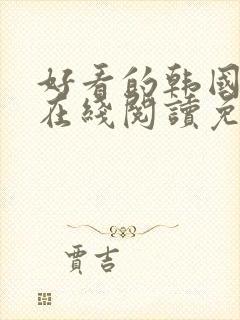 好看的韩国
在线阅读免
贾吉